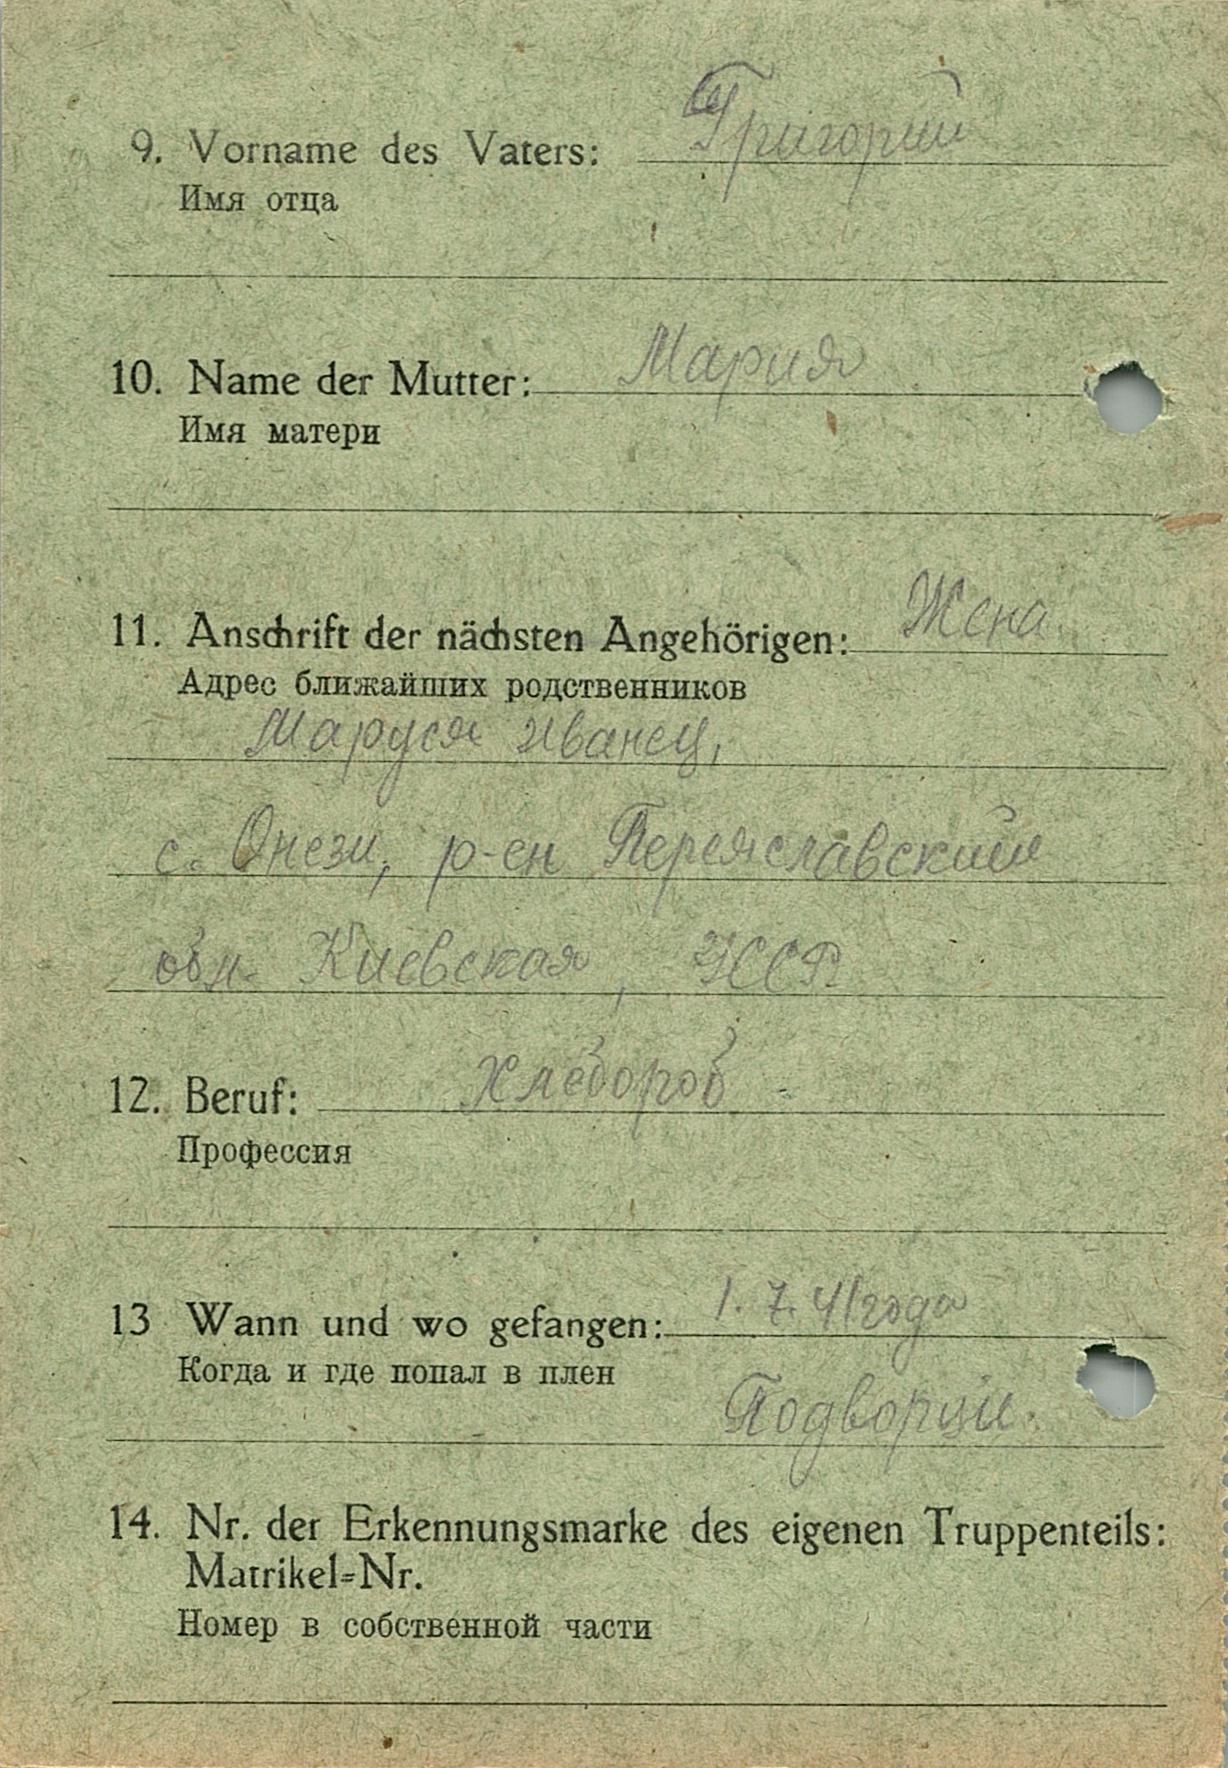 9. Vorname des Vaters: Григорий
Имя отца
10. Name der Mutter: Мария
Имя матери
11. Anschrift der nächsten Angehörigen: Жена
Адрес ближайших родственников
Маруся Иванец,
с. Онези, р-ен Переяславский
обл. Киевская, УССР.
12. Beruf: Хлебороб
Профессия
13 Wann und wo gefangen: 1. 7. 41 года
Когда и где попал в плен
Подворци.
14. Nr. der Erkennungsmarke des eigenen Truppenteils:
Matrikel-Nr.
Номер в собственной части